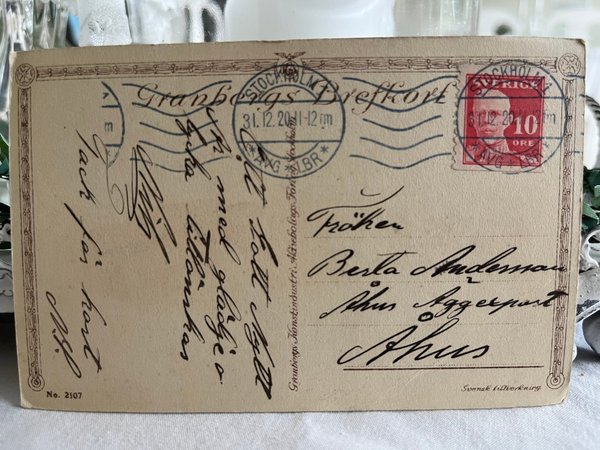 Granbergs Brefkort
STOCKHOLM 1
31.12.20.11-12 em
* AVG * LBR *
STOCKHOLM 1
31.12.20
* AVG
SVERIGE
10
ÖRE
Ett Gott Nytt
År med glädje o
lycka tillönskas
Tack för kort
Granbergs Konstindustri Aktiebolags Förlag Stockholm
Fröken
Berta Andersson
Åhus Äggexport
Åhus
No. 2107
Svensk tillverkning.